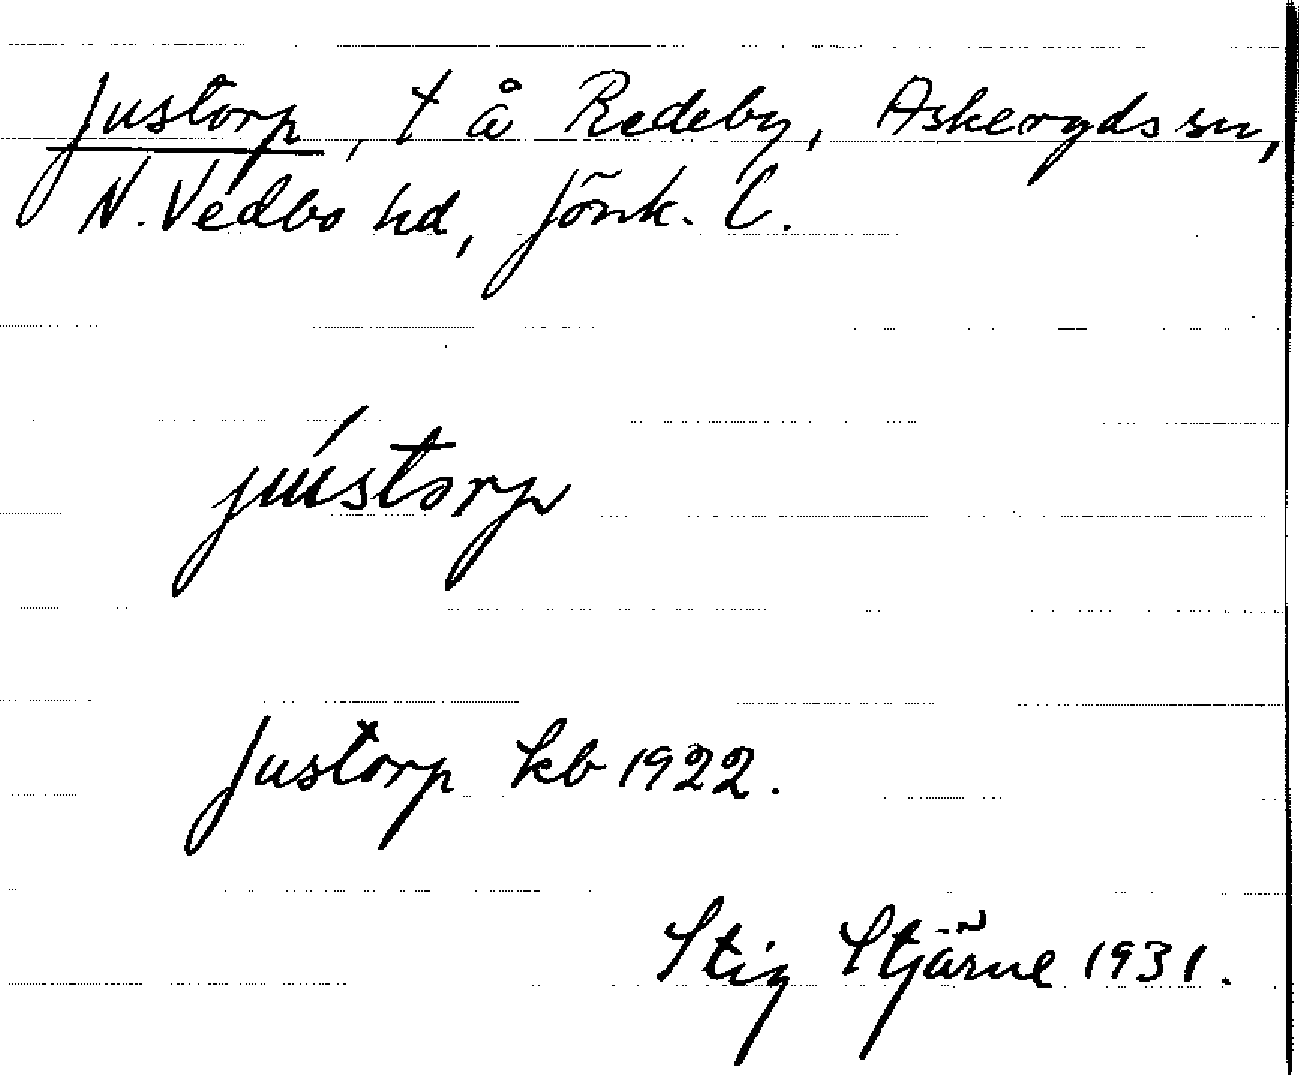 Justorp, t å Redeby, Askeryds sn,
N. Vedbo hd, Jönk. l.
jústorp
Justorp kb 1922.
Stig Stjärne 1931.